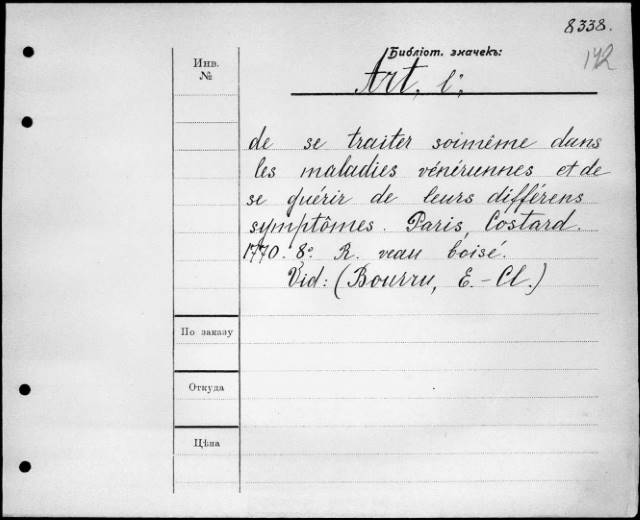 8338.
Библіот. значекъ:
142
Инв.
№
Art, l';
de se traiter soimême dans
les maladies vénériennes et de
se guérir de leurs différens
symptômes. Paris, Costard.
1770. 8º. R. veau boisé.
Vid: (Bourru, E.-Cl.)
По заказу
Откуда
Цѣна